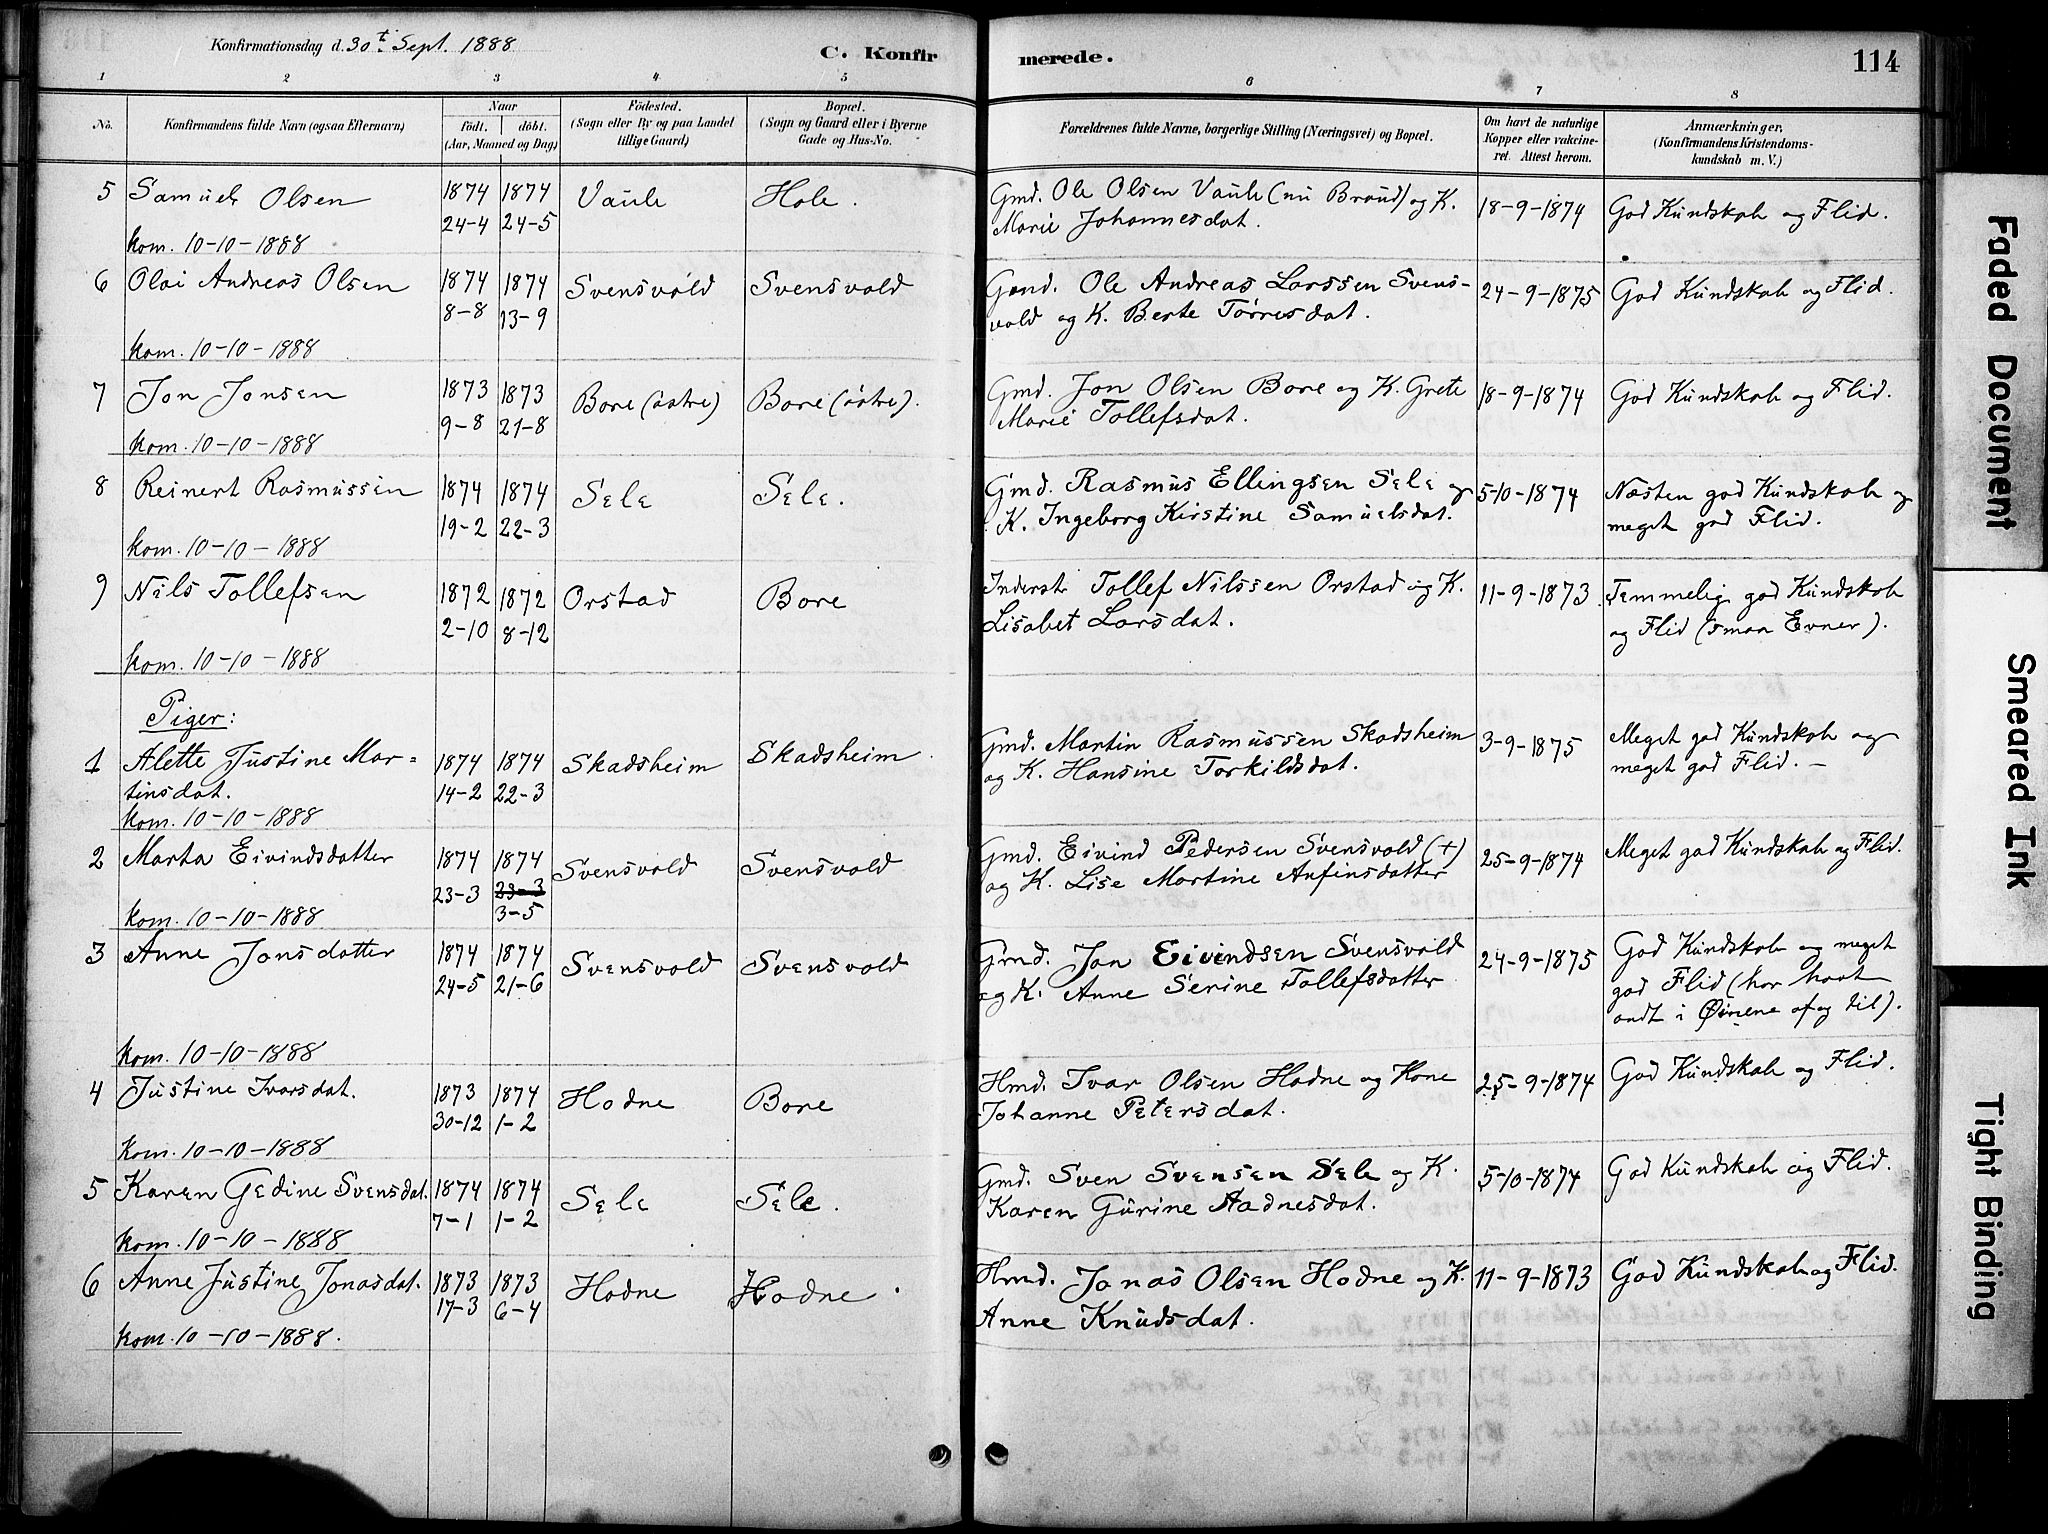 Konfirmationsdag d. 30t Sept. 1888
C. Konfir
merede.
114
1 2 3 4 5 6 7 8
No.
Konfirmandens fulde Navn (ogsaa Efternavn)
Naar
födt. döbt.
(Aar, Maaned og Dag)
Födested.
(Sogn eller By og paa Landet
tillige Gaard)
Bopæl.
(Sogn og Gaard eller i Byerne
Gade og Hus-No.
Forældrenes fulde Navne, borgerlige Stilling (Næringsvei) og Bopæl.
Om havt de naturlige
Kopper eller vakcine-
ret. Attest herom.
Anmærkninger,
(Konfirmandens Kristendoms-
kundskab m. V.)
5 Samuel Olsen 1874 1874 Vaule Hole. Gmd. Ole Olsen Vaule (nu Braud) og K. 18-9-1874 God Kundskab og Flid.
24-4 24-5 Marie Johannesdat.
kom. 10-10-1888
6 Olai Andreas Olsen 1874 1874 Svensvold Svensvold Gmd. Ole Andreas Larssen Svens- 24-9-1875 God Kundskab og Flid.
8-8 13-9 vold og K. Berte Tørresdat.
kom. 10-10-1888
7 Jon Jonsen 1873 1873 Bore (østre) Bore (østre). Gmd. Jon Olsen Bore og K. Grete 18-9-1874 God Kundskab og Flid.
9-8 21-8 Marie Tollefsdat.
kom. 10-10-1888
8 Reinert Rasmussen 1874 1874 Sele Sele. Gmd. Rasmus Ellingsen Sele og 5-10-1874 Næsten god Kundskab og
19-2 22-3 K. Ingeborg Kirstine Samuelsdat. meget god Flid.
kom. 10-10-1888
9 Nils Tollefsen 1872 1872 Orstad Bore Inderst Tollef Nilssen Orstad og K. 11-9-1873 Temmelig god Kundskab
2-10 8-12 Lisabet Larsdat. og Flid (smaa Evner).
kom. 10-10-1888
Piger:
1 Alette Justine Mar= 1874 1874 Skadsheim Skadsheim Gmd. Martin Rasmussen Skadsheim 3-9-1875 Meget god Kundskab og
tinsdat. 14-2 22-3 og K. Hansine Torkildsdat. meget god Flid. –
kom. 10-10-1888
2 Marta Eivindsdatter 1874 1874 Svensvold Svensvold Gmd. Eivind Pedersen Svensvold (+) 25-9-1874 Meget god Kundskab og Flid.
23-3 23-3 og K. Lise Martine Anfinsdatter
kom. 10-10-1888 3-5
3 Anne Jonsdatter 1874 1874 Svensvold Svensvold Gmd. Jon Eivindsen Svensvold 24-9-1875 God Kundskab og meget
24-5 21-6 og K. Anne Serine Tollefsdatter god Flid (har havt
ondt i Øinene af og til).
kom. 10-10-1888
4 Justine Ivarsdat. 1873 1874 Hodne Bore Hmd. Ivar Olsen Hodne og Kone 25-9-1874 God Kundskab og Flid.
30-12 1-2 Johanne Petersdat.
Kom. 10-10-1888
5 Karen Gedine Svensdat. 1874 1874 Sele Sele. Gmd. Sven Svensen Sele og K. 5-10-1874 God Kundskab og Flid.
7-1 1-2 Karen Gurine Aadnesdat.
kom. 10-10-1888
6 Anne Justine Jonasdat. 1873 1873 Hodne Hodne. Hmd. Jonas Olsen Hodne og K. 11-9-1873 God Kundskab og Flid.
17-3 6-4 Anne Knudsdat.
kom. 10-10-1888.
Faded Document
Smeared Ink
Tight Binding